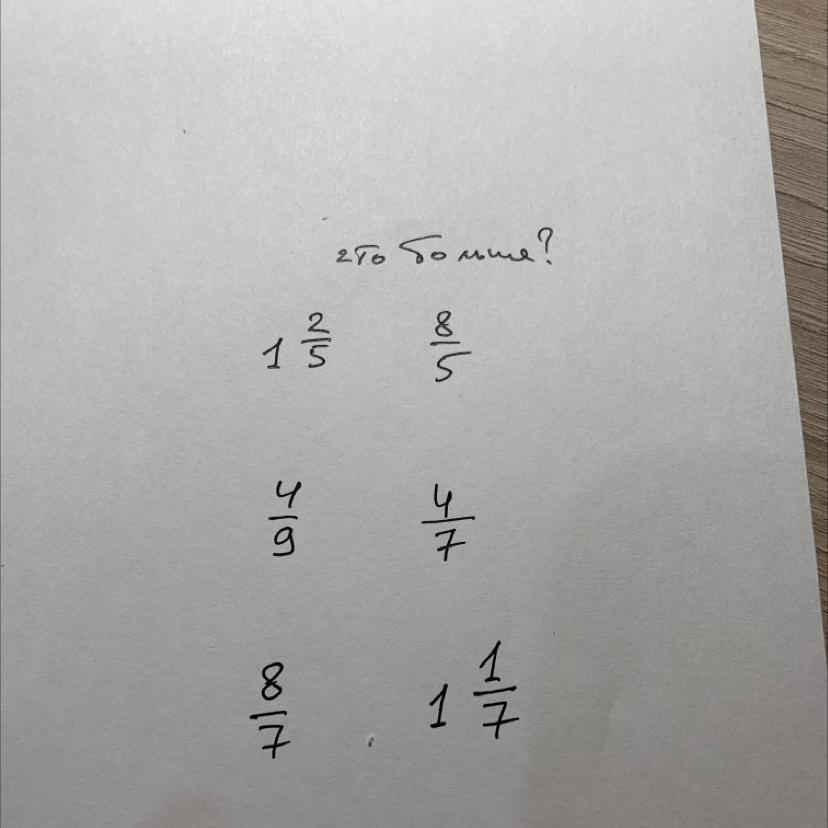 что больше?
1 2/5 8/5
4/9 4/7
8/7 1 1/7